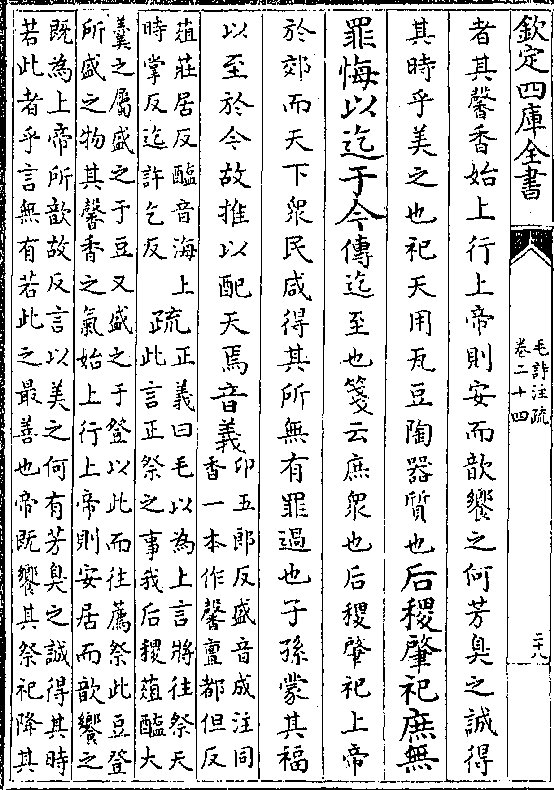 欽定四庫全書
毛詩注疏
卷二十四
二十八
者其馨香始上行上帝則安而歆饗之何芳臭之誠得
其時乎美之也祀天用瓦豆陶器質也后稷肇祀庶無
罪悔以迄于今傳迄至也箋云庶衆也后稷肇祀上帝
於郊而天下衆民咸得其所無有罪過也子孫蒙其福
以至於今故推以配天焉音義卬五郎反盛音成注同
香一本作馨亶都但反
葅莊居反醢音海上
時掌反迄許乞反
疏正義曰毛以為上言將往祭天
此言正祭之事我后稷葅醢大
羹之屬盛之于豆又盛之于登以此而往薦祭此豆登
所盛之物其馨香之氣始上行上帝則安居而歆饗之
既為上帝所歆故反言以美之何有芳臭之誠得其時
若此者乎言無有若此之最善也帝既饗其祭祀降其